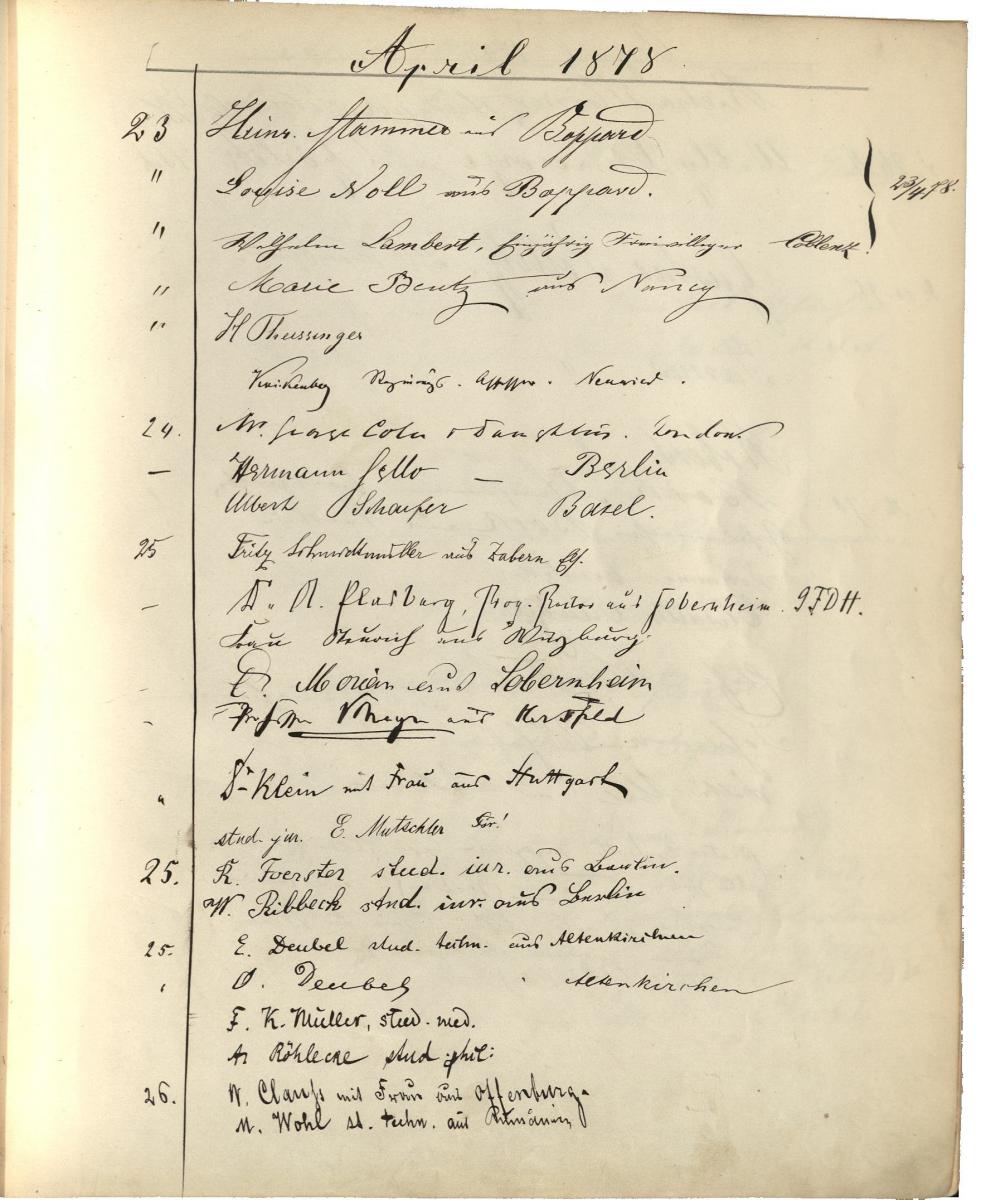 April 1878
23 Heinr. Stammer aus Boppard
" Louise Noll aus Boppard. 23/4 78.
" Wilhelm Lambert, Einjährig Freiwilliger Coblenz.
" Marie Bentz aus Nancy
" H Theissinger
Neuwied.
24. Mr. George & Daughters. London.
— Hermann Sello — Berlin
Albert Schaefer Basel.
25 Fritz Schmidtmüller aus Zabern Els.
— Dr. A. Plasberg, Prog. Rector aus Sobernheim.
Frau aus Würzburg.
– Morian aus Sobernheim
– aus Hersfeld
" Dr Klein mit Frau aus Stuttgart
stud. jur. E. Mutschler
25. R. Foerster stud. iur. aus Berlin.
W. Ribbeck stud. iur. aus Berlin
25. E. Deubel stud. techn. aus Altenkirchen
" O. Deubel " Altenkirchen
F. K. Müller, stud. med.
A. Röhlecke stud phil:
26. W. Clauß mit Frau aus Offenburg.
M. Wohl st. techn. aus Rumänien